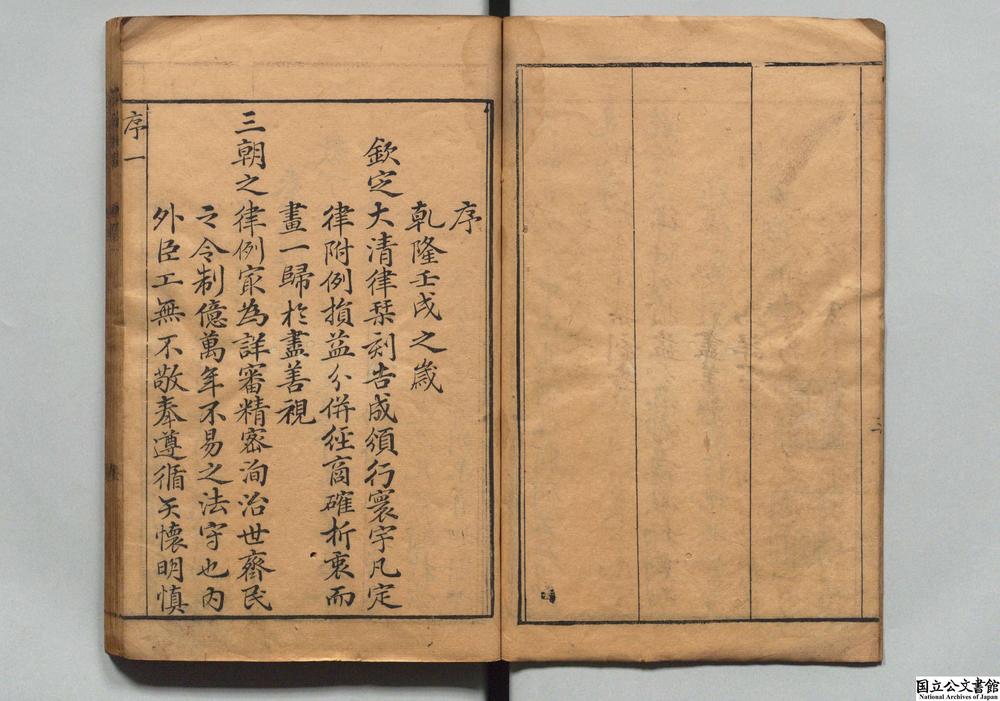 序
乾隆壬戌之歲
欽定大清律栞刻告成頒行寰宇凡定
律附例損益分併經商確折衷而
畫一歸於盡善視
三朝之律例冣為詳審精密洵治世齊民
之令制億萬年不易之法守也內
外臣工無不敬奉遵循矢懷明慎
序一
国立公文書館
National Archives of Japan